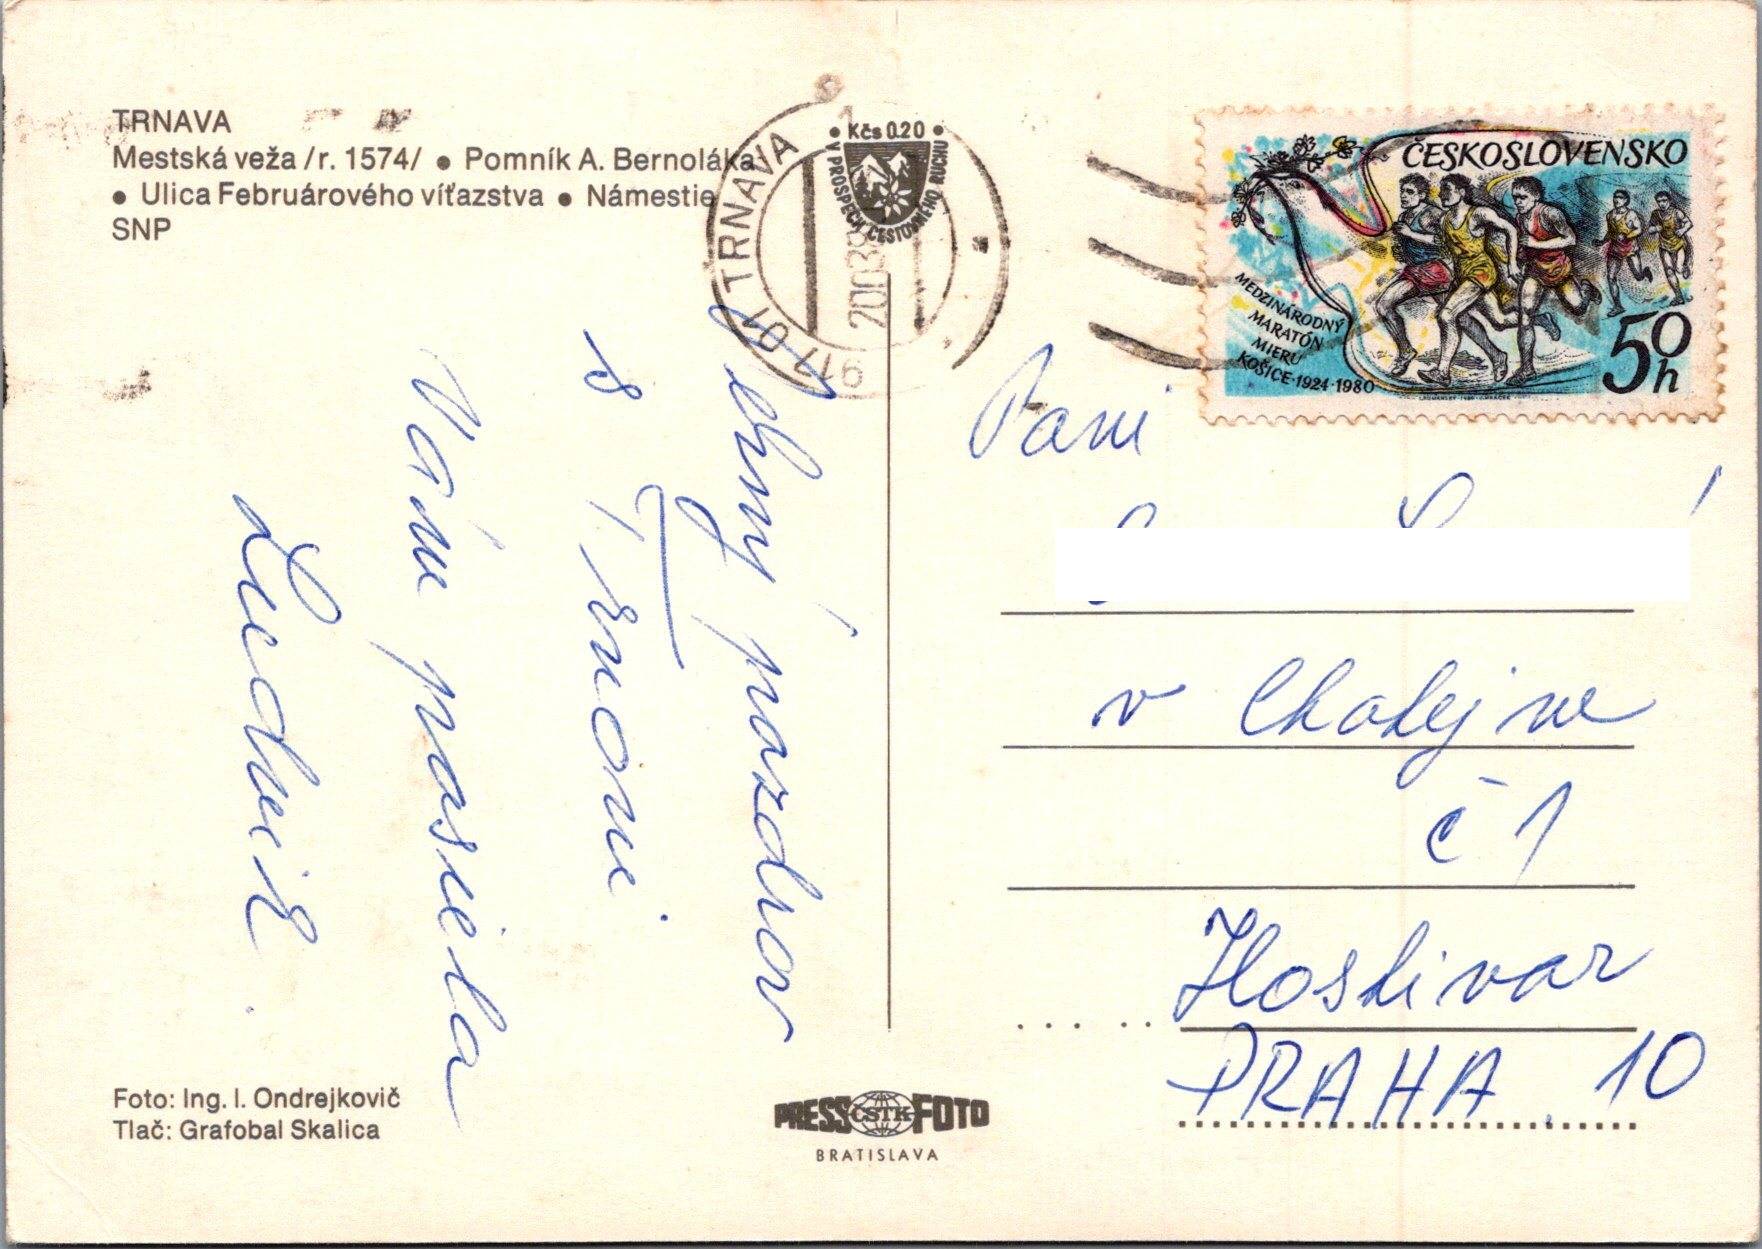 TRNAVA
Mestská veža /r. 1574/ • Pomník A. Bernoláka
• Ulica Februárového víťazstva • Námestie
SNP
• Kčs 0.20 •
V PROSPECH CESTOVNÉHO RUCHU
917 01 TRNAVA 1
ČESKOSLOVENSKO
MEDZINÁRODNÝ
MARATÓN
MIERU
KOŠICE · 1924 - 1980
50 h
pozdrav
z Trnavi
Vám posiela
Ludvik.
Pani
v Chotejne
č 1
Hostivar
PRAHA 10
Foto: Ing. I. Ondrejkovič
Tlač: Grafobal Skalica
PRESS ČSTK FOTO
BRATISLAVA